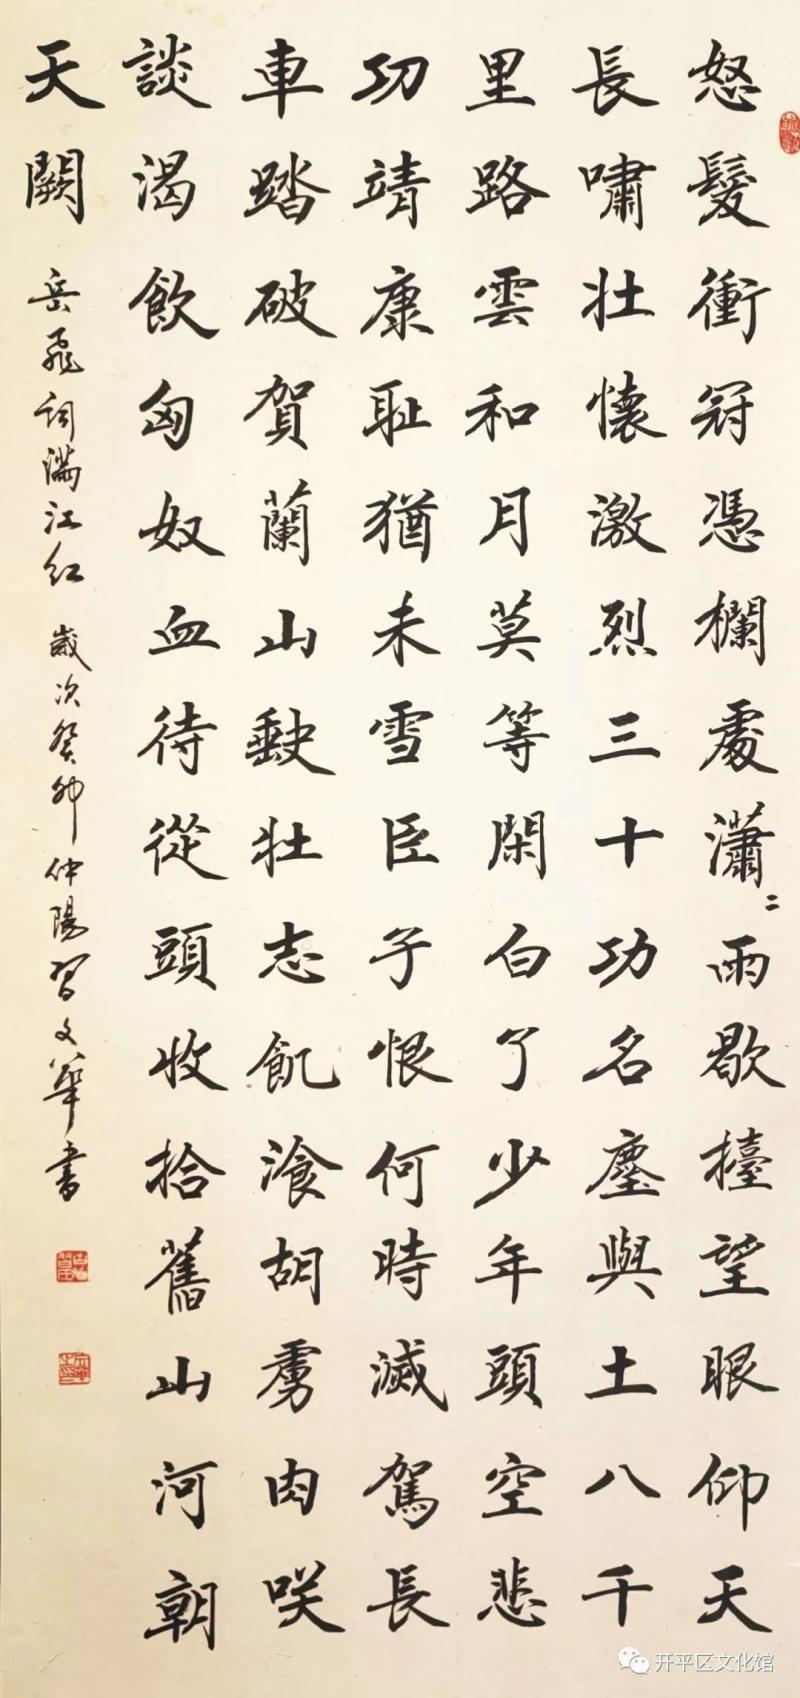 怒髮衝冠憑欄處瀟〻雨歇擡望眼仰天
長嘯壯懷激烈三十功名塵與土八千
里路雲和月莫等閑白了少年頭空悲
切靖康耻猶未雪臣子恨何時滅駕長
車踏破賀蘭山缺壯志飢湌胡虜肉咲
談渴飲匈奴血待從頭收拾舊山河朝
天闕 岳飛詞滿江紅 歲次癸卯仲陽習文華書
开平区文化馆